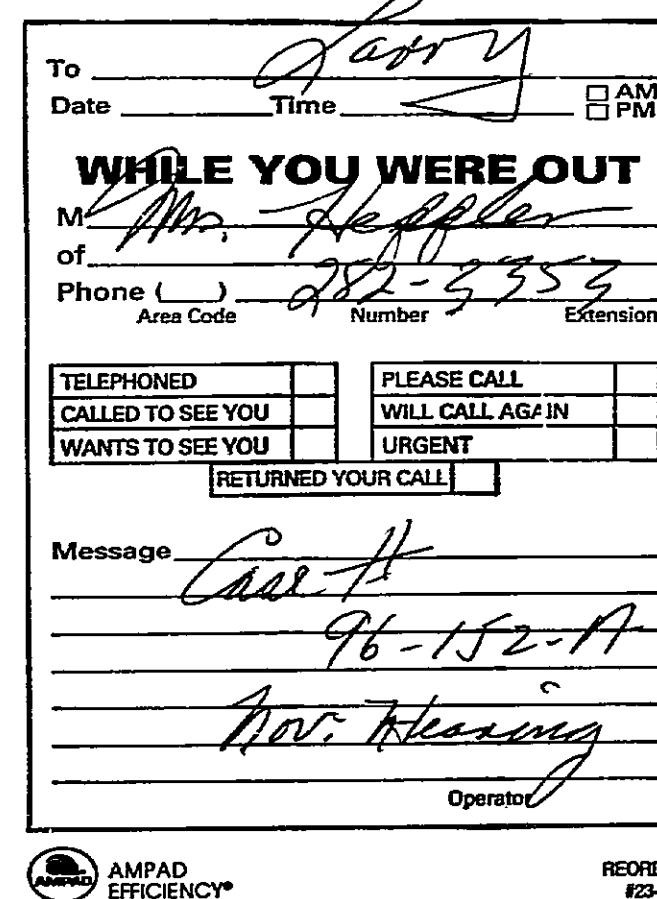 To Larry
Date Time □ AM
□ PM
WHILE YOU WERE OUT
M Mr. Heffler
of
Phone ( ) 282-3353
Area Code Number Extension
TELEPHONED PLEASE CALL
CALLED TO SEE YOU WILL CALL AGAIN
WANTS TO SEE YOU URGENT
RETURNED YOUR CALL
Message Case #
96-152-A
Nov. Hearing
Operator
AMPAD
AMPAD
EFFICIENCY®
REORD
#23-